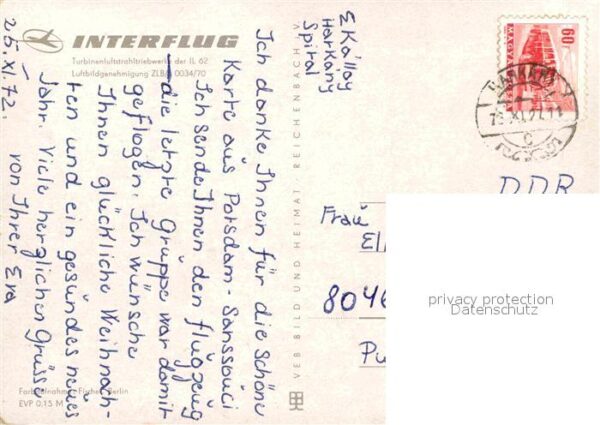 INTERFLUG
Turbinenluftstrahltriebwerke der IL 62
Luftbildgenehmigung ZLB/ 0034/70
25. XI. 72.
Ich danke Ihnen für die schöne
Karte aus Potsdam-Sanssouci
Ich sende Ihnen den flugzeug
die letzte Gruppe war damit
geflogen. Ich wünsche
Ihnen glückliche Weihnach-
ten und ein gesundes neues
Jahr. Viele herzlichen Grüsse
von Ihrer Eva
Farbaufnahme: Fischer, Berlin
EVP 0,15 M
VEB BILD UND HEIMAT REICHENBACH i. V.
E Kállay
Harkány
Spirál
60
MAGYAR
HARKÁNY
C
DDR
Frau
Ell
8046
Pu
privacy protection
Datenschutz